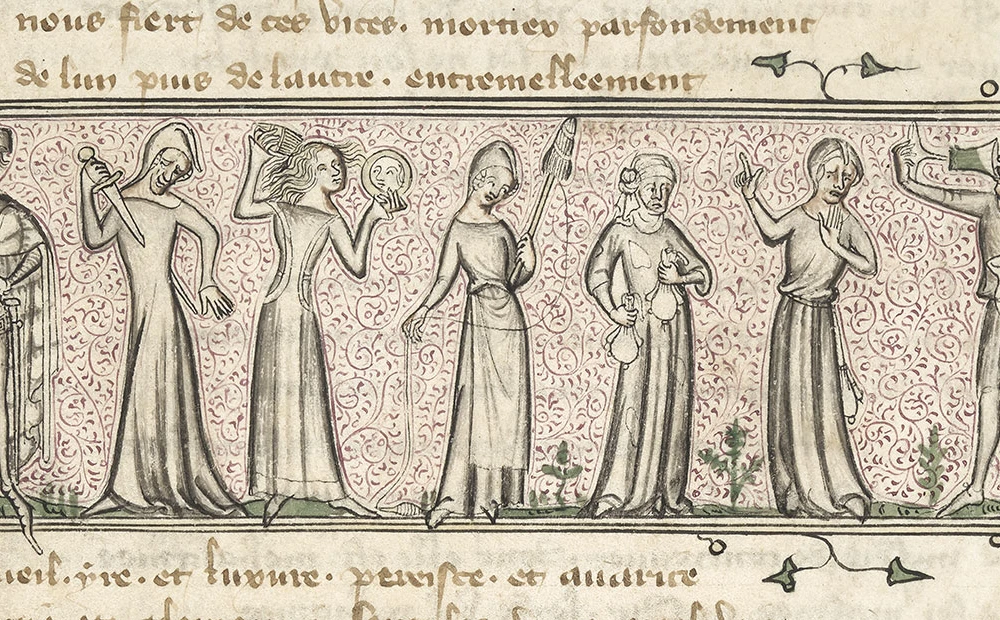 nous fiert de ces vices. mortiex parfondement
de lun puis de lautre. entremelleement
ueil. yre. et luxure. pereisce. et auarice